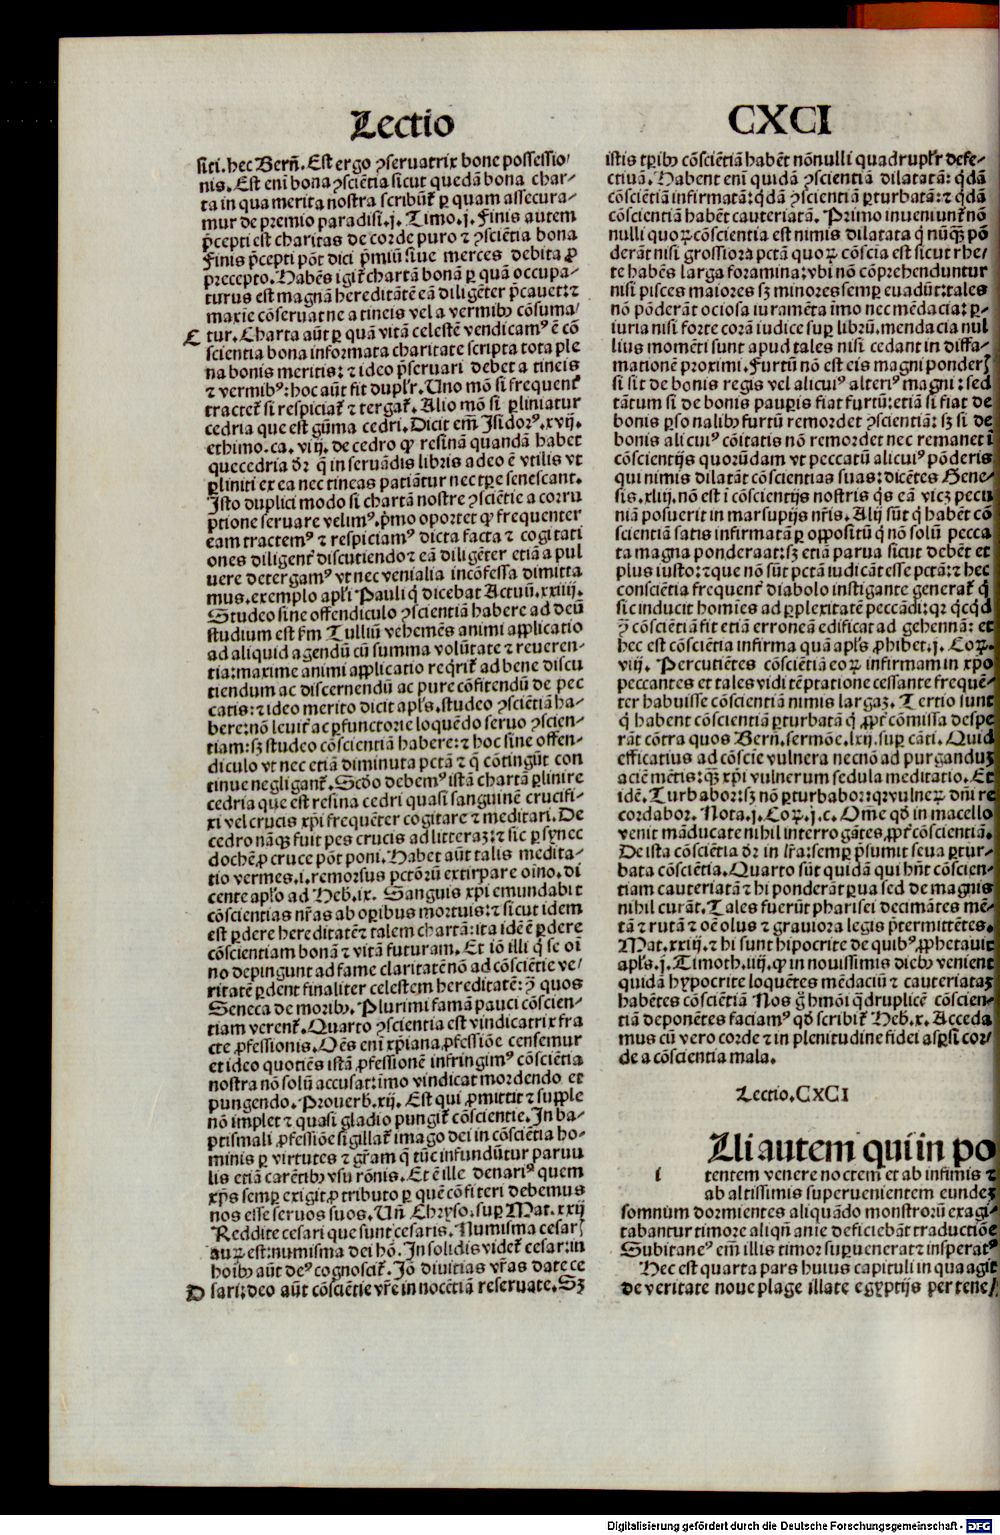 Lectio
CXCI
siti. hec Bern̄. Est ergo ꝯseruatrix bone possessio⸗
nis. Est enī bona ꝯsciētia sicut quedā bona char⸗
ta in qua merita nostra scribunt᷑ ꝑ quam assecura⸗
mur de premio paradisi. j. Timo. j. Finis autem
p̄cepti est charitas de corde puro ⁊ ꝯsciētia bona
Finis p̄cepti pōt dici p̄miū siue merces debita ꝓ
precepto. Habēs igit᷑ chartā bonā ꝑ quā occupa⸗
turus est magnā hereditātē eā diligēter p̄cauet: ⁊
maxie cōseruat ne a tineis vel a vermibꝫ cōsuma⸗
E tur. Charta aūt ꝑ quā vitā celestē vendicamꝰ ē cō
scientia bona informata charitate scripta tota ple
na bonis meritis: ⁊ ideo p̄seruari debet a tineis
⁊ vermibꝰ: hoc aūt fit dupl'r. Uno mō si frequent᷑
tractet᷑ si respiciat᷑ ⁊ tergat᷑. Alio mō si ꝑliniatur
cedria que est gūma cedri. Dicit em̄ Isidorꝰ. xvij.
ethimo. ca. vij. de cedro ꝙ resinā quandā habet
que cedria dr̄ q̄ in seruādis libris adeo ē vtilis vt
ꝑliniti ex ea nec tineas patiātur nec tꝑe senescant.
Isto duplici modo si chartā nostre ꝯsciētie a corru
ptione seruare velimꝰ. p̄mo oportet ꝙ frequenter
eam tractemꝰ ⁊ respiciamꝰ dicta facta ⁊ cogitati
ones diligent᷑ discutiendo ⁊ eā diligēter etiā a pul
uere detergamꝰ vt nec venialia incōfessa dimitta
mus. exemplo apl'i Pauli q̄ dicebat Actuū. xxiiij.
Studeo sine offendiculo ꝯscientiā habere ad deū
studium est f᷑m Tulliū vehemēs animi applicatio
ad aliquid agendū cū summa volūtate ⁊ reueren⸗
tia: maxime animi applicatio reqrit᷑ ad bene discu
tiendum ac discernendū ac pure cōfitendū de pec
catis: ⁊ ideo merito dicit apl's. studeo ꝯsciētiā ha⸗
bere: nō leuit᷑ ac ꝑfunctorie loquēdo seruo ꝯscien⸗
tiam: sꝫ studeo cōscientiā habere: ⁊ hoc sine offen⸗
diculo vt nec etiā diminuta pctā ⁊ q̄ cōtingūt con
tinue negligant᷑. Scd̄o debemꝰ istā chartā ꝑlinire
cedria que est resina cedri quasi sanguinē crucifi⸗
xi vel crucis xp̄i frequēter cogitare ⁊ meditari. De
cedro nāqꝫ fuit pes crucis ad litteraꝫ: ⁊ sic ꝑ synec
dochē ꝓ cruce pōt poni. Habet aūt talis medita⸗
tio vermes. i. remorsus pctōrū extirpare oīno. di
cente apl'o ad Heb. ix. Sanguis xp̄i emundabit
cōscientias nr̄as ab oꝑibus mortuis: ⁊ sicut idem
est ꝑdere hereditatē ⁊ talem chartā: ita idē ē ꝑdere
cōscientiam bonā ⁊ vitā futuram. Et iō illi q̄ se oī
no depingunt ad fame claritatē nō ad cōsciētie ve⸗
ritatē ꝑdent finaliter celestem hereditatē: ꝟ̄ quos
Seneca de moribꝫ. Plurimi famā pauci cōscien⸗
tiam verent᷑. Quarto ꝯscientia est vindicatrix fra
cte ꝓfessionis. Oēs enī xp̄iana ꝓfessiōe censemur
et ideo quotiēs istā ꝓfessionē infringimꝰ cōsciētia
nostra nō solū accusat: īmo vindicat mordendo et
pungendo. Prouerb. xij. Est qui ꝓmittit ⁊ supple
nō implet ⁊ quasi gladio pungit᷑ cōscientie. In ba⸗
ptismali ꝓfessiōe sigillat᷑ imago dei in cōsciētia ho⸗
minis ꝑ virtutes ⁊ gr̄am q̄ tūc infundūtur paruu
lis etiā carētibꝫ vsu rōnis. Et ē ille denariꝰ quem
xp̄s semꝑ exigit ꝓ tributo ꝑ quē cōfiteri debemus
nos esse seruos suos. Un̄ Chryso. suꝑ Mat. xxij
Reddite cesari que sunt cesaris. Numisma cesarꝭ
auꝝ est: numisma dei hō. In solidis videt᷑ cesar: in
hoībꝫ aūt deꝰ cognoscit᷑. Iō diuitias vr̄as date ce
D sari: deo aūt cōsciētie vr̄e innocētiā reseruate. Sꝫ
istis tribꝫ cōsciētiā habēt nōnulli quadrupl'r defe⸗
ctiuā. Habent enī quidā ꝯscientiā dilatatā: q̄dā
cōsciētiā infirmatā: q̄dā ꝯscientiā ꝑturbatā: ⁊ q̄dā
cōscientiā habēt cauteriatā. Primo inueniunt᷑ nō
nulli quoꝝ cōscientia est nimis dilatata q̄ nūqꝫ pō
derāt nisi grossiora pctā quoꝝ cōscia est sicut rhe⸗
te habēs larga foramina: vbi nō cōprehenduntur
nisi pisces maiores sꝫ minores semꝑ euadūt: tales
nō pōderāt ociosa iuramēta īmo nec mēdacia: ꝑ⸗
iuria nisi forte corā iudice suꝑ librū. mendacia nul
lius momēti sunt apud tales nisi cedant in diffa⸗
mationē proximi. Furtū nō est eis magni ponderꝭ
si sit de bonis regis vel alicuiꝰ alteriꝰ magni: sed
tātum si de bonis pauꝑis fiat furtū: etiā si fiat de
bonis ꝑsonalibꝫ furtū remordet ꝯscientiā: sꝫ si de
bonis alicuiꝰ cōitatis nō remordet nec remanet ī
cōscientijs quorūdam vt peccatū alicuiꝰ pōderis
qui nimis dilatāt cōscientias suas: dicētes Gene⸗
sis. xliij. nō est ī cōscientijs nostris q̄s eā vicꝫ pecu
niā posuerit in marsupijs nr̄is. Alij sūt q̄ habēt cō
scientiā satis infirmatā ꝑ oppositū q̄ nō solū pecca
ta magna ponderaat: sꝫ etiā parua sicut debēt et
plus iusto: ⁊ que nō sūt pctā iudicāt esse pctā: ⁊ hec
consciētia frequent᷑ diabolo instigante generat᷑ q̄
sic inducit homīes ad ꝑplexitatē peccādi: qꝛ q̄cqd
ꝟ̄ cōsciētiā fit etiā erroneā edificat ad gehennā: et
hec est cōsciētia infirma quā apl's ꝓhibet. j. Coꝝ.
viij. Percutiētes cōsciētiā eoꝝ infirmam in xp̄o
peccantes et tales vidi tēptatione cessante frequē⸗
ter habuisse cōscientiā nimis largaꝫ. Tertio sunt
q̄ habent cōscientiā ꝑturbatā q̄ ꝓpt᷑ cōmissa despe
rāt cōtra quos Bern̄. sermōe. lxij. suꝑ cāti. Quid
efficatius ad cōscie vulnera necnō ad purganduꝫ
aciē mētis: qꝫ xp̄i vulnerum sedula meditatio. Et
idē. Turbabor: sꝫ nō ꝑturbabor: qꝛ vulneꝝ dn̄i re
cordabor. Nota. j. Coꝝ. j. c. Om̄e qd̄ in macello
venit māducate nihil interrogātes ꝓpt᷑ cōscientiā.
De ista cōsciētia dr̄ in lr̄a: semꝑ p̄sumit seua ꝑtur⸗
bata cōsciētia. Quarto sūt quidā qui hn̄t cōscien⸗
tiam cauteriatā ⁊ hi ponderāt ꝑua sed de magnis
nihil curāt. Tales fuerūt pharisei decimātes mē⸗
tā ⁊ rutā ⁊ oē olus ⁊ grauiora legis p̄termittētes.
Mat. xxiij. ⁊ hi sunt hipocrite de quibꝰ ꝓphetauit
apl's. j. Timoth. iiij. ꝙ in nouissimis diebꝫ venient
quidā hypocrite loquētes mēdaciū ⁊ cauteriataꝫ
habētes cōsciētiā Nos g̊ hmōi q̄druplicē cōscien⸗
tiā deponētes faciamꝰ qd̄ scribit᷑ Heb. x. Acceda
mus cū vero corde ⁊ in plenitudine fidei asꝑsi cor⸗
de a cōscientia mala.
Lectio. CXCI
Lli autem qui in po
i tentem venere noctem et ab infimis ⁊
ab altissimis superuenientem eundeꝫ
somnum dormientes aliquādo monstrorū exagi⸗
tabantur timore aliqn̄ anie deficiebāt traductiōe
Subitaneꝰ em̄ illis timor suꝑuenerat ⁊ insperatꝰ
Hec est quarta pars huius capituli in qua agit
de veritate noue plage illate egyptijs per tene⸗
Digitalisierung gefördert durch die Deutsche Forschungsgemeinschaft - DFG